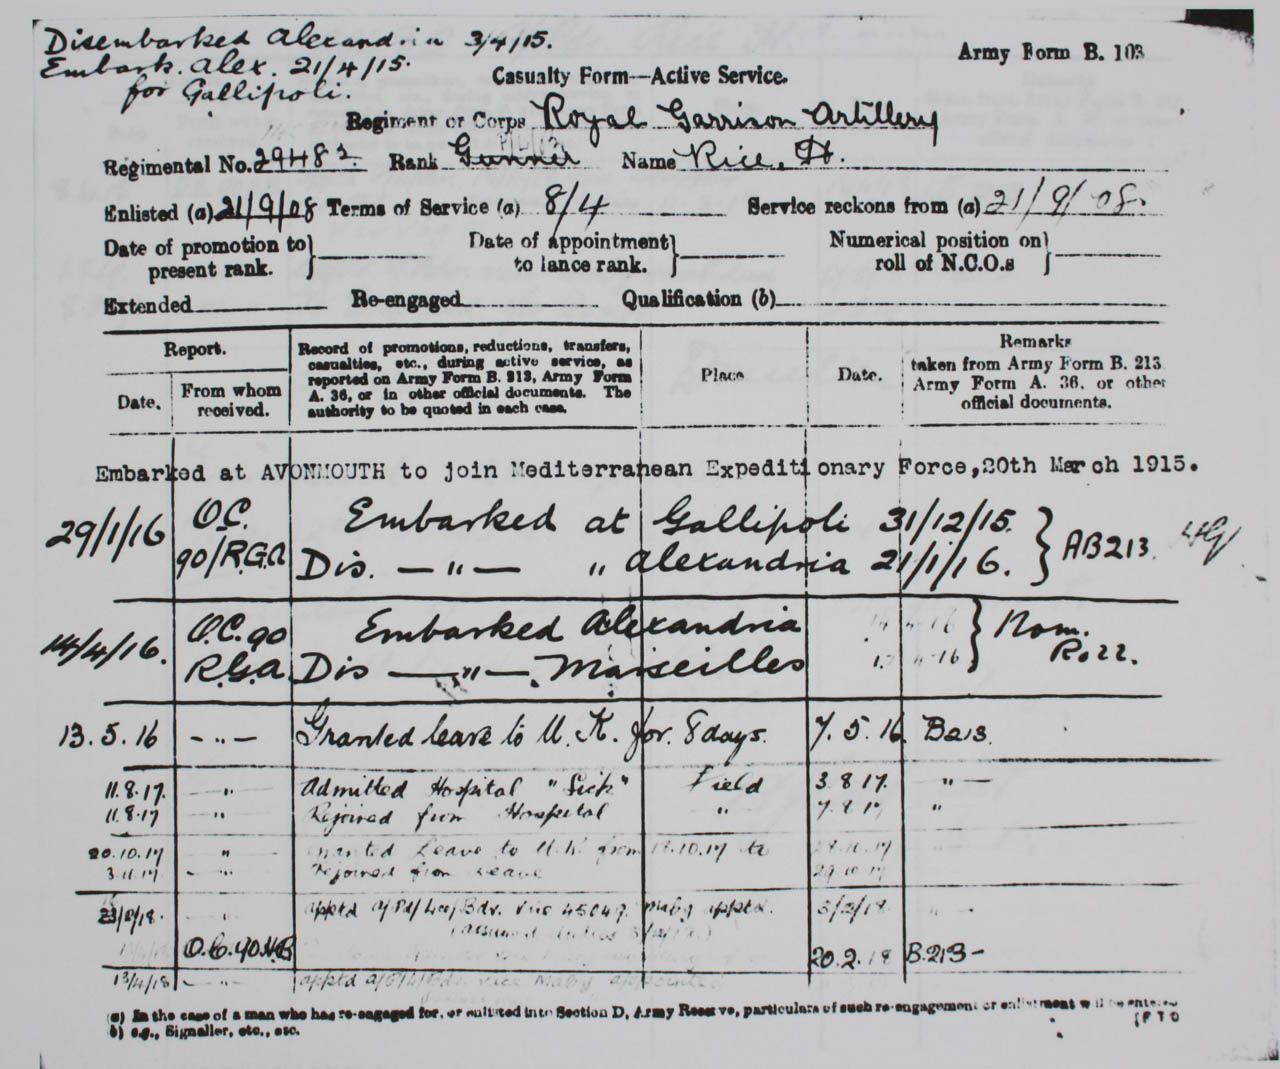 Disembarked Alexandria 3/4/15.
Embark. Alex. 21/4/15.
for Gallipoli.
Army Form B. 103
Casualty Form—Active Service.
Regiment or Corps Royal Garrison Artillery
Regimental No. 29482. Rank Gunner Name Rice, H.
Enlisted (a) 21/9/08 Terms of Service (a) 8/4 Service reckons from (a) 21/9/08.
Date of promotion to present rank. Date of appointment to lance rank. Numerical position on roll of N.C.Os
Extended Re-engaged Qualification (b)
Report.
Date. From whom received.
Record of promotions, reductions, transfers, casualties, etc., during active service, as reported on Army Form B. 213, Army Form A. 36, or in other official documents. The authority to be quoted in each case.
Place
Date.
Remarks taken from Army Form B. 213 Army Form A. 36, or other official documents.
Embarked at AVONMOUTH to join Mediterranean Expeditionary Force, 20th March 1915.
29/1/16 O.C. 90/R.G.A Embarked at Gallipoli 31/12/15.
Dis. — " — " Alexandria 21/1/16. } AB213.
14/4/16. O.C. 90 R.G.A. Embarked Alexandria 4-16
Dis — " — Marseilles 4-16 } Nom. Roll.
13.5.16 - " - Granted leave to U.K. for 8 days. 7.5.16 B213.
11.8.17. " Admitted Hospital "Sick" Field 3.8.17. " —
11.8.17 " Rejoined from Hospital " 7.8.17 "
20.10.17 " Granted Leave to U.K. from 10.17 to 10.17
3.11.17 - " - Rejoined from Leave 29.10.17
23/2/18. " apptd a/Bdr. vice 45049. Maby apptd. 3/2/18 " -
(assumed duties
O.C. 90.H.B 20.2.18 B.213-
13/4/18 - " - apptd Bdr vice Maby appointed
(a) In the case of a man who has re-engaged for, or enlisted into Section D, Army Reserve, particulars of such re-engagement or enlistment will be entered
b) e.g., Signaller, etc., etc.
[P T O